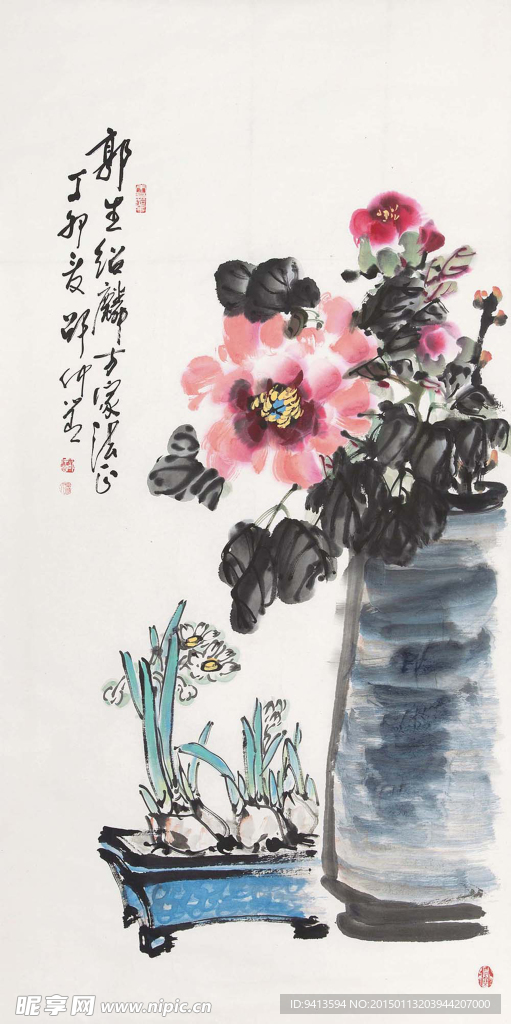 郭生绍麟方家法正
丁卯夏邵仲节
昵享网 www.nipic.cn
ID:9413594 NO:20150113203944207000